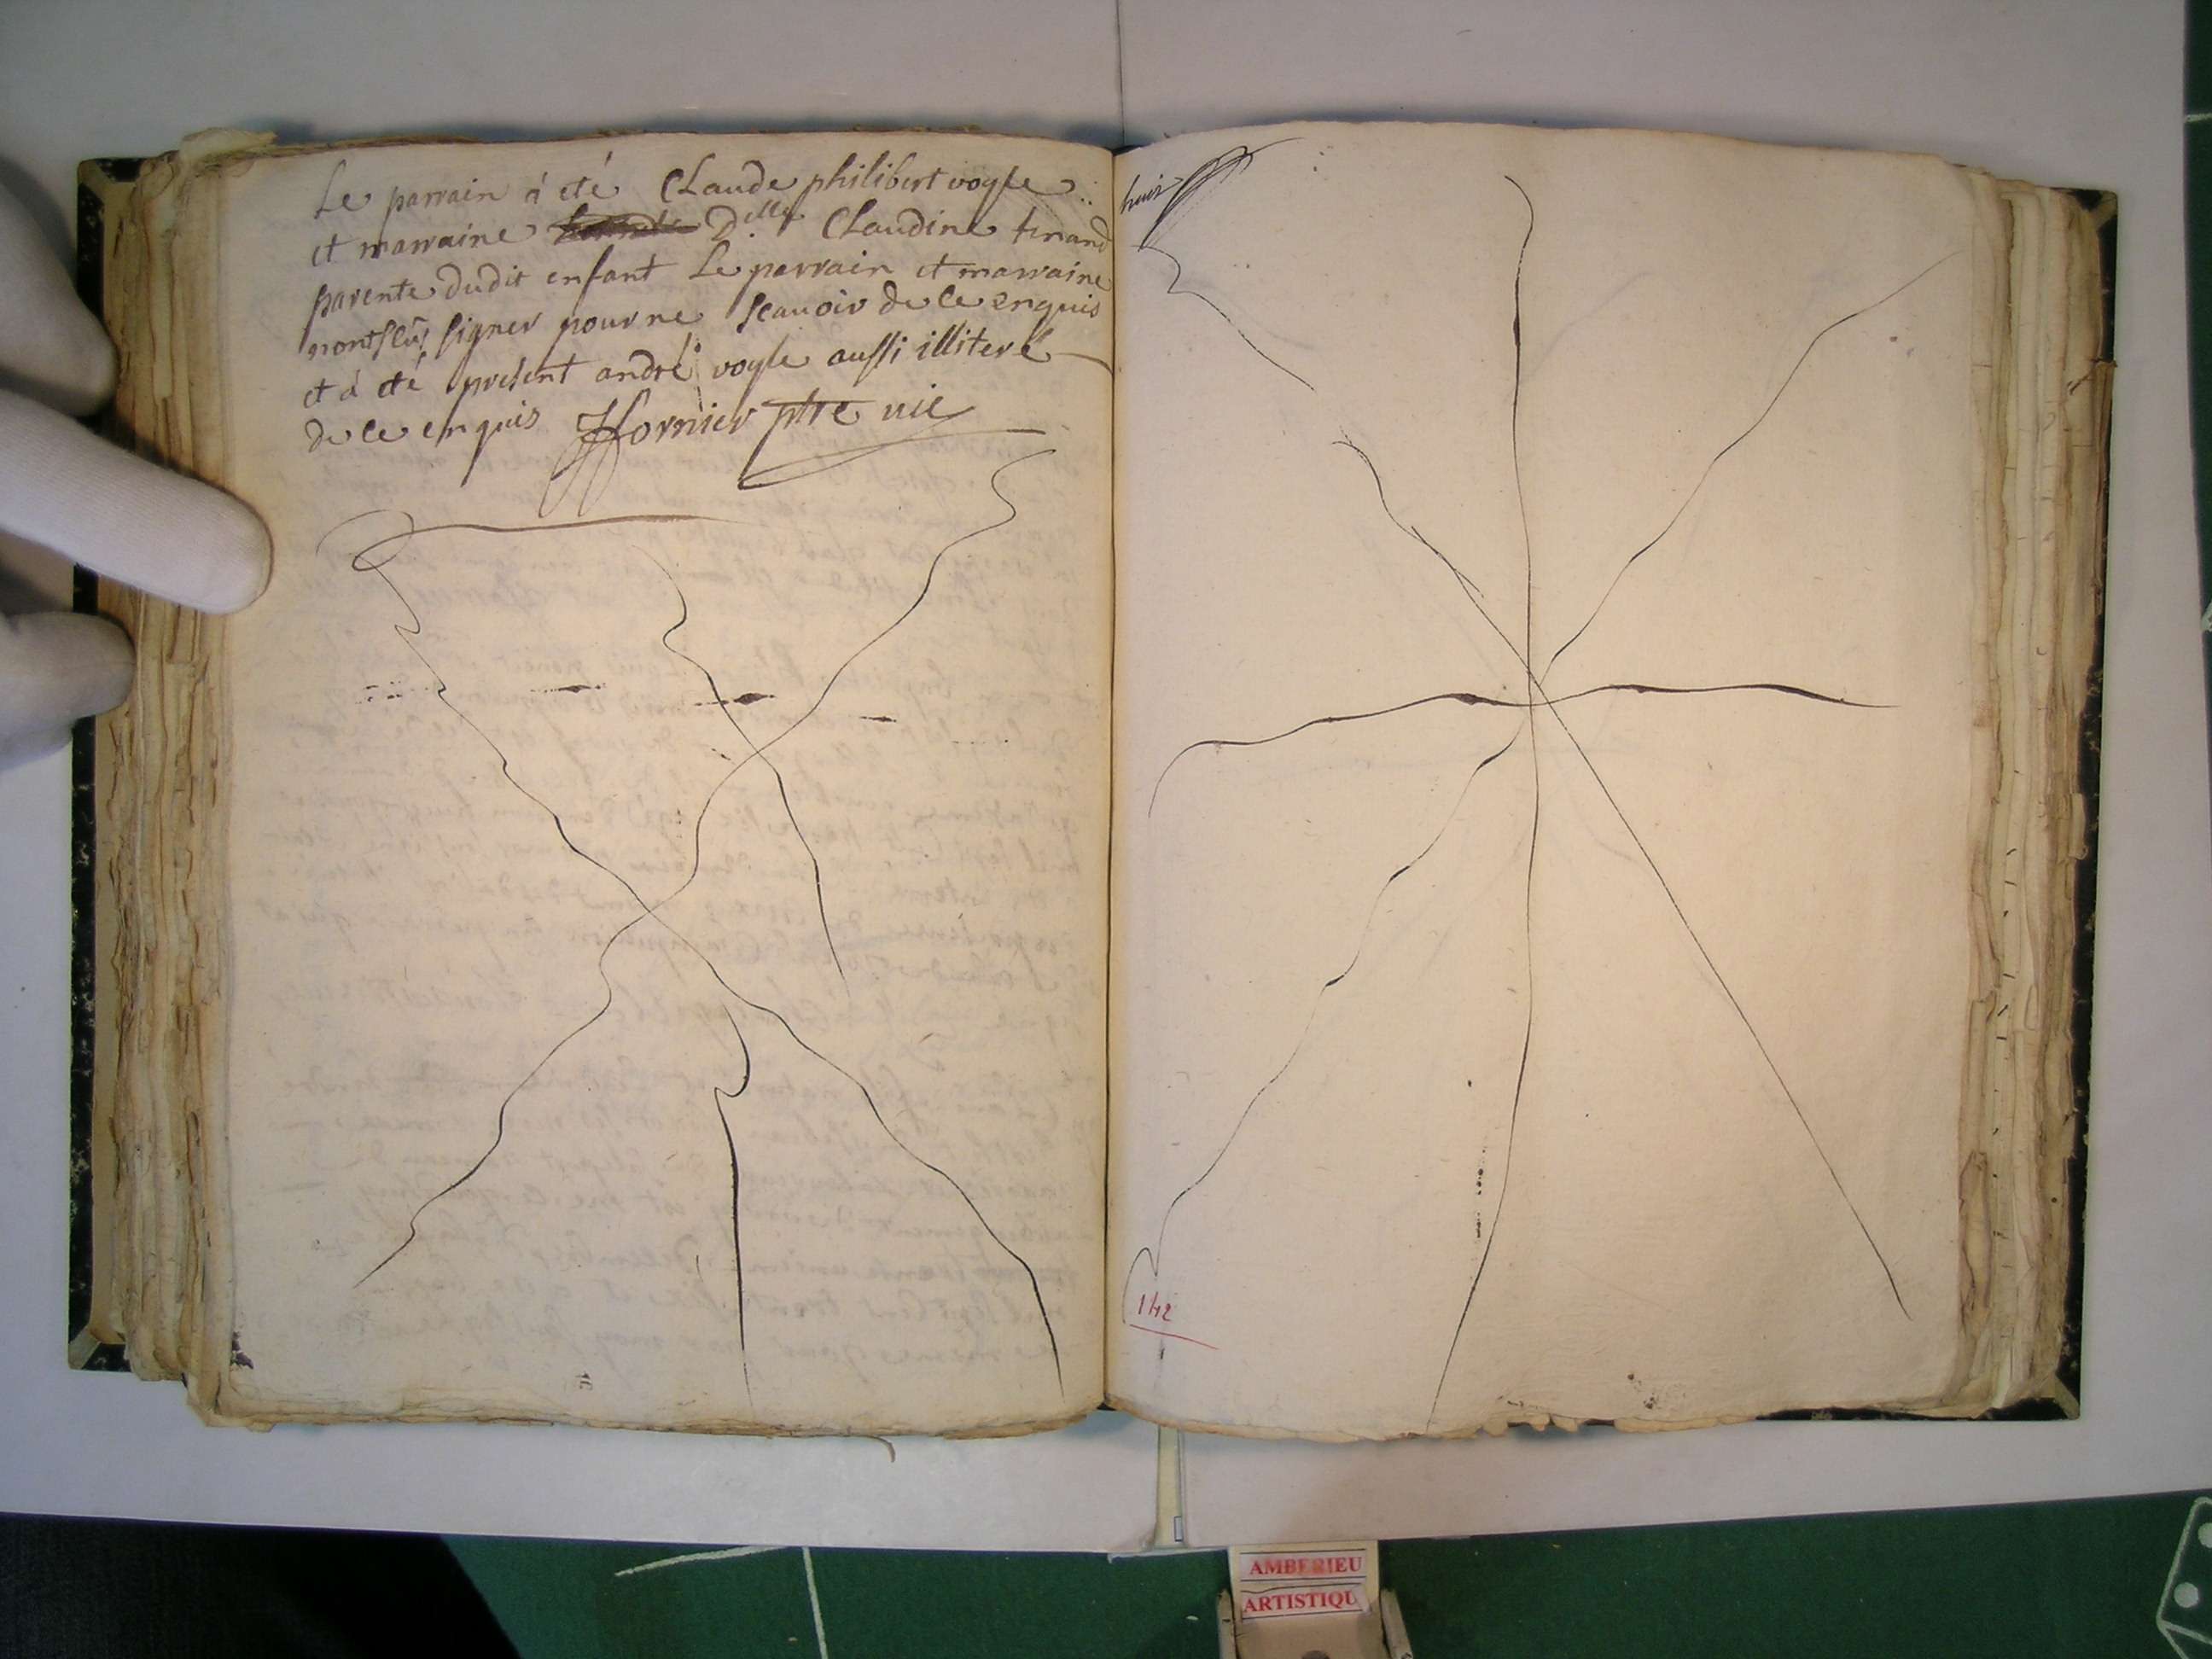 Le parrain à eté Claude philibert vogle
et marraine D.elle Claudine tenand
parente dudit enfant Le parrain et marraine
nont sçû signer pour ne scauoir de ce enquis
et à eté present andré vogle aussi illiteré
de ce enquis ffornier ptre vic
huit
142
AMBERIEU
ARTISTIQU